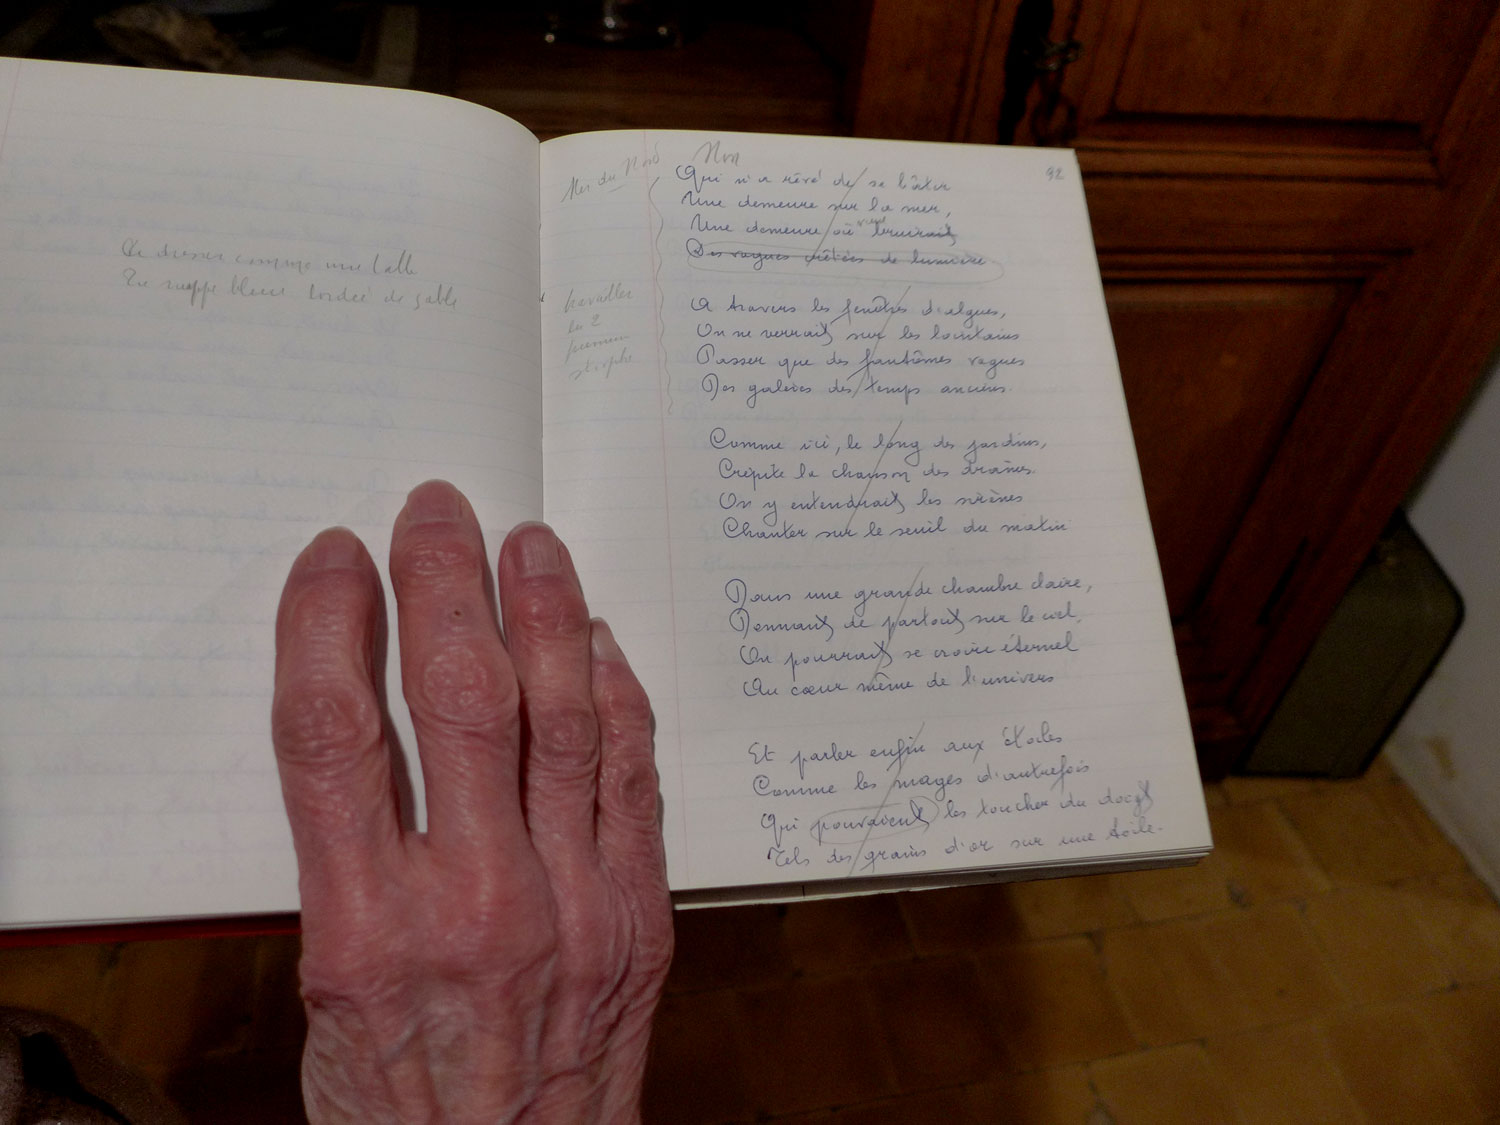 comme une table
bordée de sable
Mer du Nord
Non
92
Qui n'a rêvé de se bâtir
Une demeure sur la mer,
Une demeure où
Des vagues de lumière
travailler
les 2
strophe
A travers les fenêtres d'algues,
On ne verrait sur les lointains
Passer que des fantômes vagues
Des galères des temps anciens.
Comme ici, le long des jardins,
Crépite la chanson des draines.
On y entendrait les sirènes
Chanter sur le seuil du matin
Dans une grande chambre claire,
Donnant de partout sur le ciel,
On pourrait se croire éternel
Au cœur même de l'univers
Et parler enfin aux étoiles
Comme les mages d'autrefois
Qui pouvaient les toucher du doigt
Tels des grains d'or sur une toile.